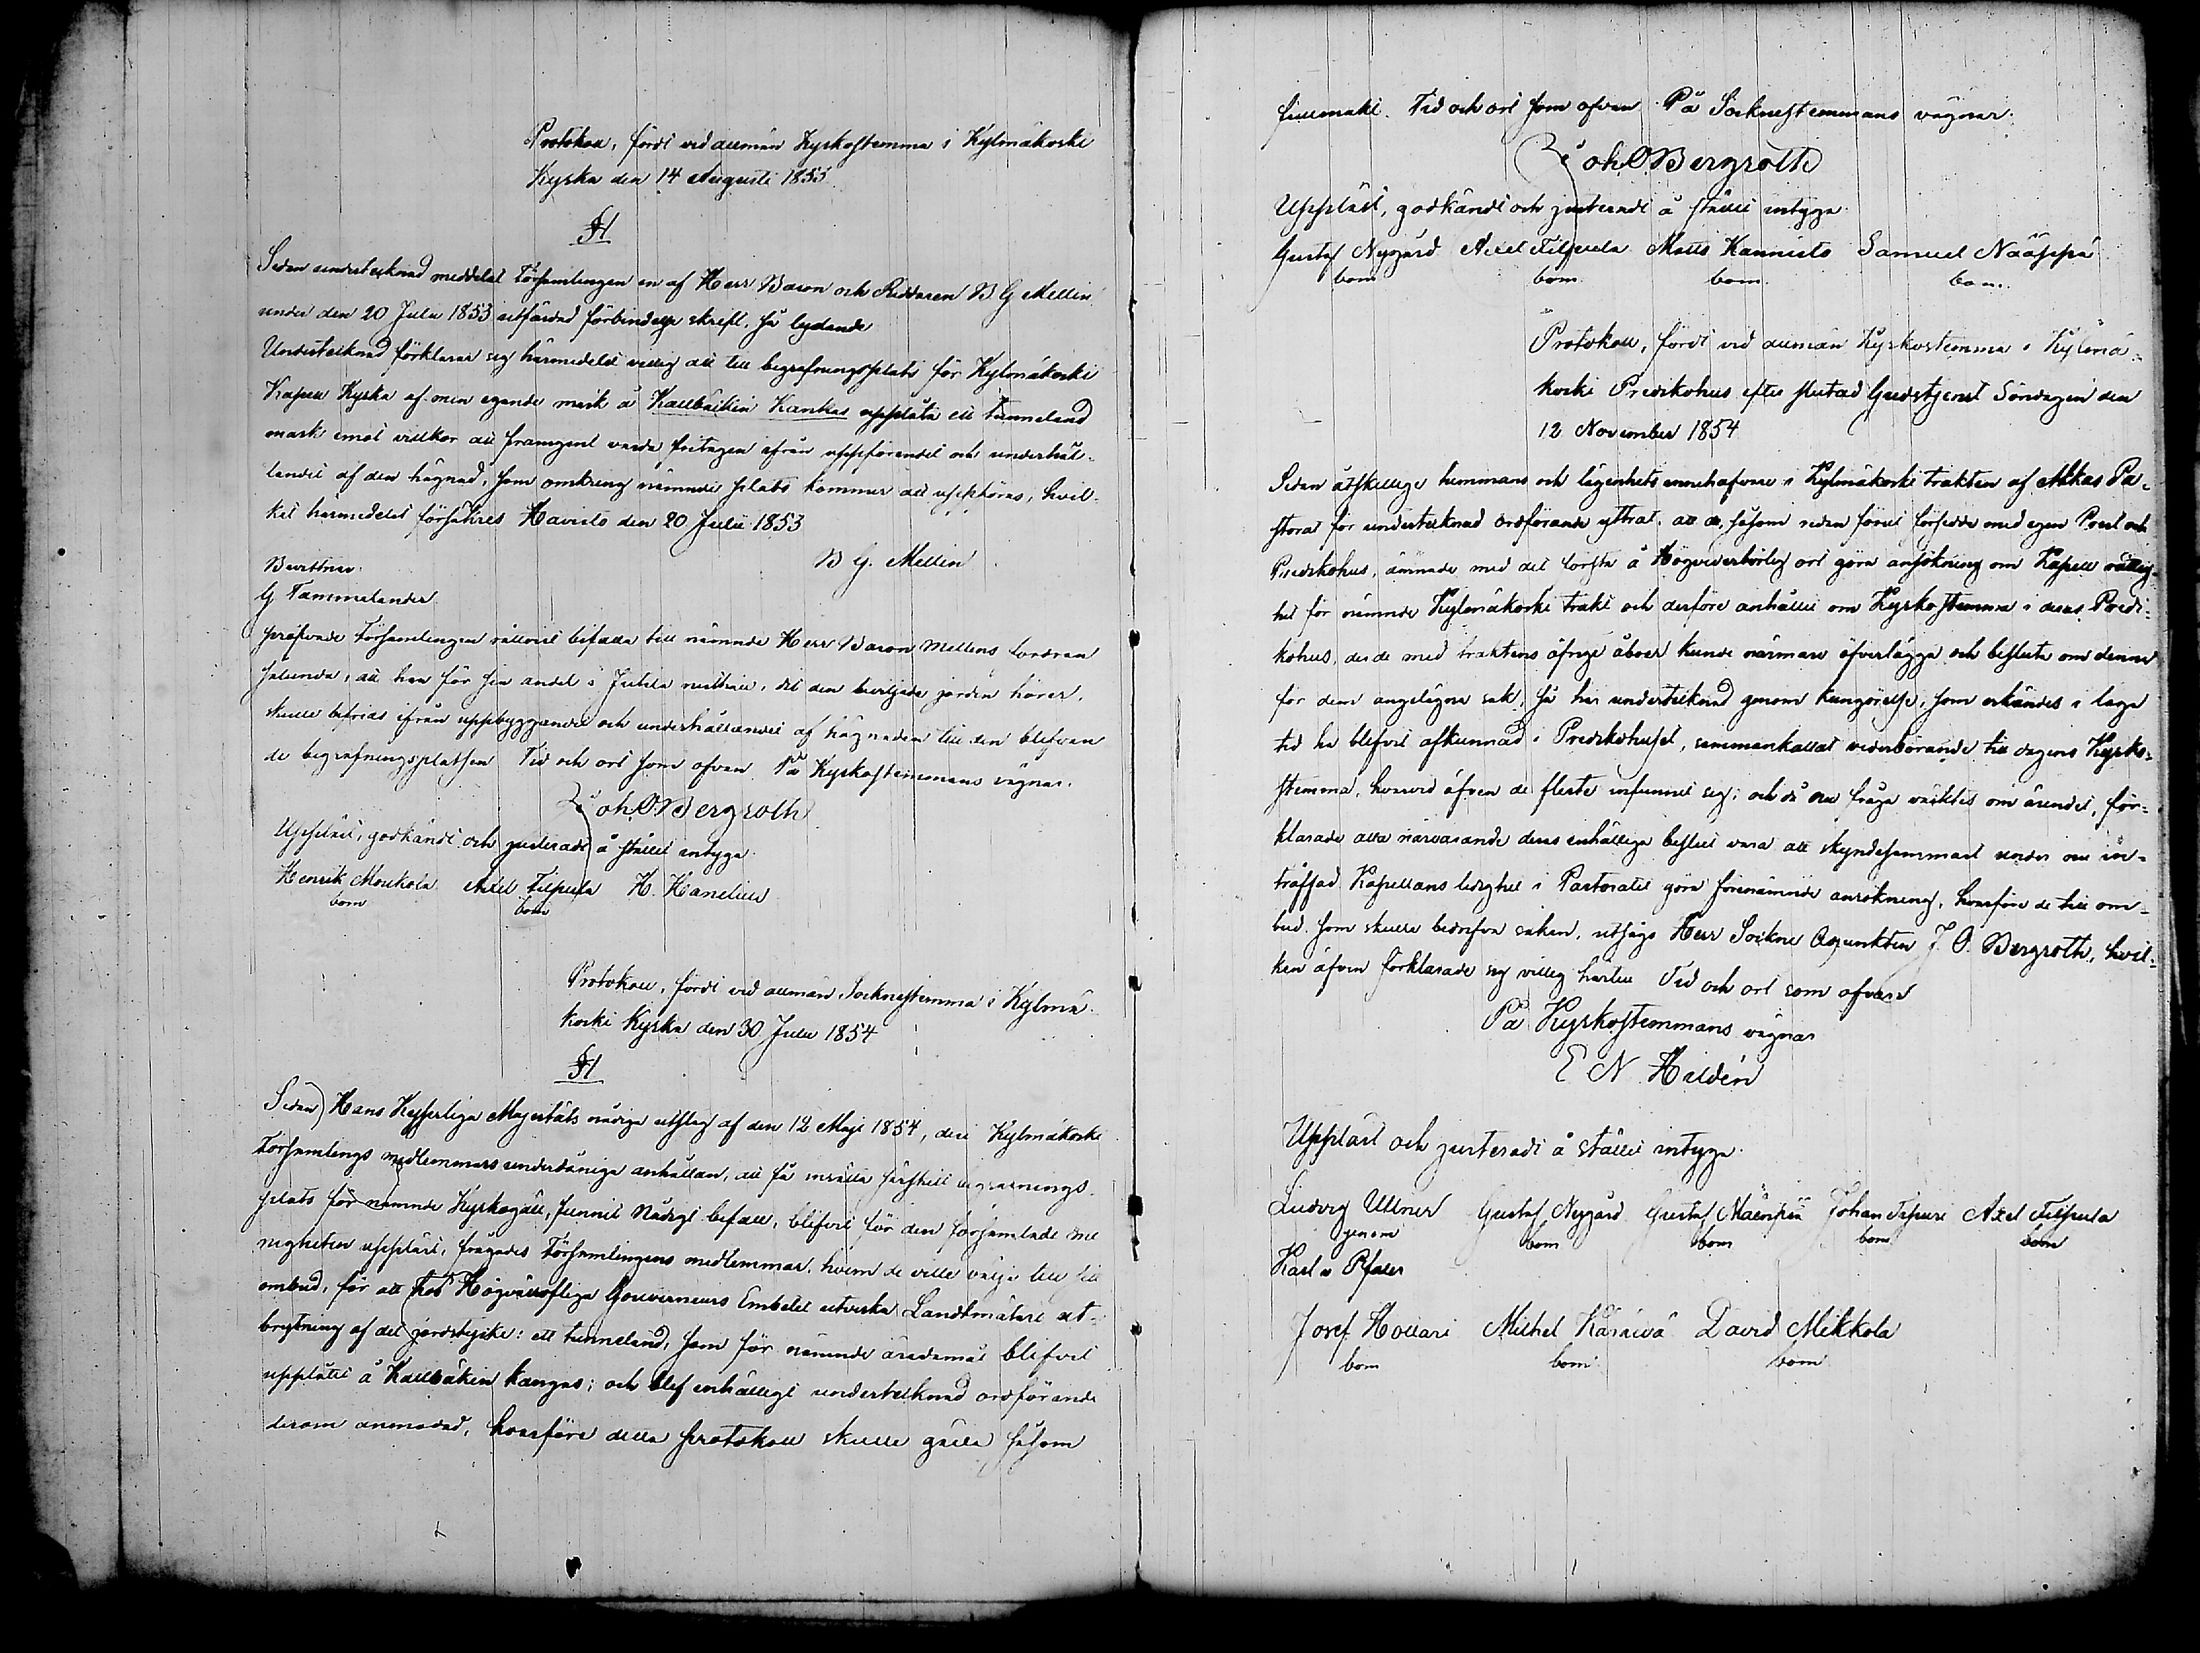 Protokoll, fördt vid allmän Kyrkostemma i Kylmäkoski
Kyrka den 14 Augusti 1853
§1
Sedan undertecknad meddelat Församlingen en af Herr Baron och Riddaren B. G Mellin
under den 20 Julii 1853 utfärdad förbindelse skrift, så lydande
Undertecknad förklarar sig härmedelst villig att till begrafningsplats för Kylmäkoski
Kapell Kyrka af min egande mark å Kallbäckin Kankas upplåta ett tunneland
mark emot villkor att framgent varda fritagen ifrån uppförandet och underhål-
landet af den hägnad, som omkring nämnde plats kommer att uppföras, hvil-
ket härmedelst försäkres Havisto den 20 Julii 1853
B G. Mellin
Bevittnar
G Tammelander
pröfvade Församlingen rättvist bifalla till nämnde Herr Baron Mellins fordran
sålunda, att han för sin andel i Juhla rusthåll, dit den beviljade jorden hörer,
skulle befrias ifrån uppbyggandet och underhållandet af hägnaden till den blifvan
de begrafningsplatsen Tid och ort som ofvan På Kyrkostemmans vägnar.
Joh. O Bergroth
Uppläst, godkändt och justeradt å stället intyga
Henrik Moukola Axel Tilpula H. Hanelius
bom bom
Protokoll, fördt vid allmän Socknestemma i Kylmä
koski Kyrka den 30 Julii 1854
§1
Sedan Hans Kejserliga Majestäts nådiga utslag af den 12 Maji 1854, deri Kylmäkoski
Församlings medlemmars underdåniga anhållan, att få inrätta särskilt begrafnings-
plats för nämnde Kyrkogäll, funnit Nådigt befall, blifvit för den församlade me
nigheten uppläst, frågades Församlingens medlemmar, hvem de ville välja till sitt
ombud, för att hos Högvälloflige Gouverneurs Embetet utverka Landtmätare ut-
brytning af det jordstycke: ett tunneland, som för nämnde ändamål blifvit
upplåtit å Kallbäkin kangas; och blef enhälligt undertecknad ordförande
derom anmodad, hvarföre detta protokoll skulle gälla såsom
fullmakt. Tid och ort som ofvan På Socknestemmans vägnar.
Joh. O Bergroth
Uppläst, godkändt och justeradt å stället intyga
Gustaf Nygård Axel Tilpula Matts Kannisto Samuel Nääppä
bom bom bom bom
Protokoll, fördt vid allmän Kyrkostemma i Kylmä-
koski Predikohus efter slutad Gudstjenst Söndagen den
12 November 1854
Sedan åtskillige hemmans och lägenhets innehafvare i Kylmäkoski trakten af Akkas Pa-
storat för undertecknad ordförande yttrat, att de, såsom redan förut försedde med egen Prest och
Predikohus, ämnade med det första å Högvederbörlig ort göra ansökning om Kapell rättig-
het för nämnde Kylmäkoski trakt och derföre anhållit om Kyrkostemma i deras Predi-
kohus, der de med traktens öfrige åboer kunde närmare öfverlägga och besluta om denna
för dem angelägna sak, så har undertecknad genom kungörelse, som erkändes i laga
tid ha blifvit afkunnad i Predikohuset, sammankallat vederbörande till dagens Kyrko-
stemma, hvarvid äfven de fleste infunnit sig; och då nu fråga väcktes om ärendet, för-
klarade alla närvarande deras enhälliga beslut vara att skyndesammast under nu in-
träffad Kapellans ledighet i Pastoratet göra förenämnde ansökning, hvarföre de till om-
bud, som skulle bedrifva saken, utsågo Herr Sockne Adjunkten J. O. Bergroth, hvil-
ken äfven förklarade sig villig härtill Tid och ort som ofvan
På Kyrkostemmans vägnar
E N. Hildén
Uppläst och justeradt å stället intyga
Ludvig Ullner Gustaf Nygård Gustaf Mäenpää Johan Tapuri Axel Tilpula
genom bom bom bom bom
Karl a Pfaler
Josef Hollari Michel Käräivä David Mikkola
bom bom bom